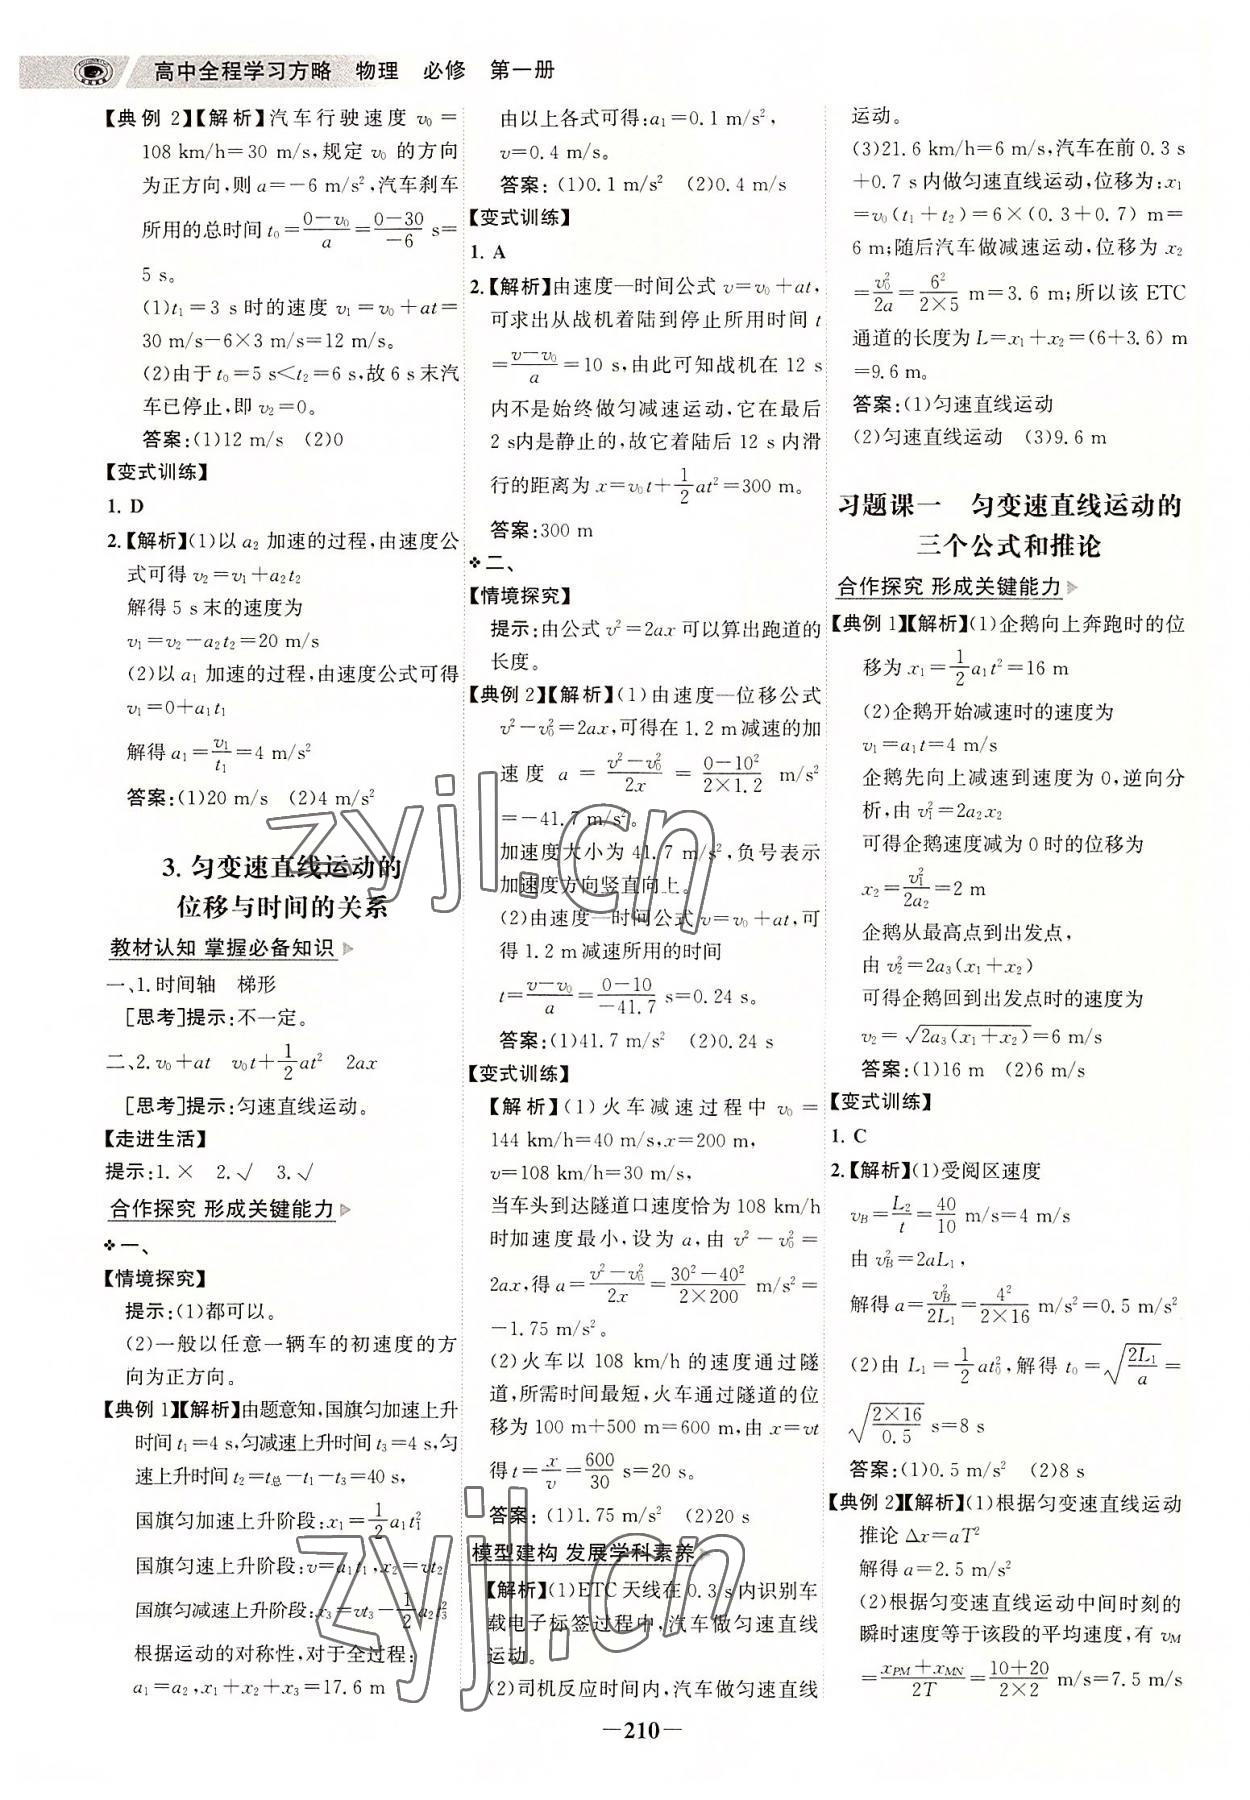 高中全程学习方略 物理 必修 第一册
【典例 2】【解析】汽车行驶速度 v₀=
108 km/h=30 m/s,规定 v₀ 的方向
为正方向,则 a=-6 m/s²,汽车刹车
所用的总时间 t₀=(0-v₀)/a=(0-30)/(-6) s=
5 s。
(1)t₁=3 s 时的速度 v₁=v₀+at=
30 m/s-6×3 m/s=12 m/s。
(2)由于 t₀=5 s<t₂=6 s,故 6 s 末汽
车已停止,即 v₂=0。
答案:(1)12 m/s (2)0
【变式训练】
1. D
2.【解析】(1)以 a₂ 加速的过程,由速度公
式可得 v₂=v₁+a₂t₂
解得 5 s 末的速度为
v₁=v₂-a₂t₂=20 m/s
(2)以 a₁ 加速的过程,由速度公式可得
v₁=0+a₁t₁
解得 a₁=v₁/t₁=4 m/s²
答案:(1)20 m/s (2)4 m/s²
3. 匀变速直线运动的
位移与时间的关系
教材认知 掌握必备知识
一、1.时间轴 梯形
[思考]提示:不一定。
二、2.v₀+at v₀t+1/2at² 2ax
[思考]提示:匀速直线运动。
【走进生活】
提示:1.× 2.√ 3.√
合作探究 形成关键能力
一、
【情境探究】
提示:(1)都可以。
(2)一般以任意一辆车的初速度的方
向为正方向。
【典例 1】【解析】由题意知,国旗匀加速上升
时间 t₁=4 s,匀减速上升时间 t₃=4 s,匀
速上升时间 t₂=t总-t₁-t₃=40 s,
国旗匀加速上升阶段:x₁=1/2a₁t₁²
国旗匀速上升阶段:v=a₁t₁,x₂=vt₂
国旗匀减速上升阶段:x₃=vt₃-1/2a₂t₃²
根据运动的对称性,对于全过程:
a₁=a₂,x₁+x₂+x₃=17.6 m
由以上各式可得:a₁=0.1 m/s²,
v=0.4 m/s。
答案:(1)0.1 m/s² (2)0.4 m/s
【变式训练】
1. A
2.【解析】由速度—时间公式 v=v₀+at,
可求出从战机着陆到停止所用时间 t
=(v-v₀)/a=10 s,由此可知战机在 12 s
内不是始终做匀减速运动,它在最后
2 s内是静止的,故它着陆后 12 s 内滑
行的距离为 x=v₀t+1/2at²=300 m。
答案:300 m
二、
【情境探究】
提示:由公式 v²=2ax 可以算出跑道的
长度。
【典例 2】【解析】(1)由速度—位移公式
v²-v₀²=2ax,可得在 1.2 m减速的加
速度 a=(v²-v₀²)/2x=(0-10²)/(2×1.2) m/s²
=-41.7 m/s²。
加速度大小为 41.7 m/s²,负号表示
加速度方向竖直向上。
(2)由速度—时间公式 v=v₀+at,可
得 1.2 m 减速所用的时间
t=(v-v₀)/a=(0-10)/(-41.7) s=0.24 s。
答案:(1)41.7 m/s² (2)0.24 s
【变式训练】
【解析】(1)火车减速过程中 v₀=
144 km/h=40 m/s,x=200 m,
v=108 km/h=30 m/s,
当车头到达隧道口速度恰为 108 km/h
时加速度最小,设为 a,由 v²-v₀²=
2ax,得 a=(v²-v₀²)/2x=(30²-40²)/(2×200) m/s²=
-1.75 m/s²。
(2)火车以 108 km/h 的速度通过隧
道,所需时间最短,火车通过隧道的位
移为 100 m+500 m=600 m,由 x=vt
得 t=x/v=600/30 s=20 s。
答案:(1)1.75 m/s² (2)20 s
模型建构 发展学科素养
【解析】(1)ETC 天线在 0.3 s内识别车
载电子标签过程中,汽车做匀速直线
运动。
(2)司机反应时间内,汽车做匀速直线
运动。
(3)21.6 km/h=6 m/s,汽车在前 0.3 s
+0.7 s内做匀速直线运动,位移为:x₁
=v₀(t₁+t₂)=6×(0.3+0.7) m=
6 m;随后汽车做减速运动,位移为 x₂
=v₀²/2a=6²/(2×5) m=3.6 m;所以该 ETC
通道的长度为 L=x₁+x₂=(6+3.6) m
=9.6 m。
答案:(1)匀速直线运动
(2)匀速直线运动 (3)9.6 m
习题课一 匀变速直线运动的
三个公式和推论
合作探究 形成关键能力
【典例 1】【解析】(1)企鹅向上奔跑时的位
移为 x₁=1/2a₁t²=16 m
(2)企鹅开始减速时的速度为
v₁=a₁t=4 m/s
企鹅先向上减速到速度为 0,逆向分
析,由 v₁²=2a₂x₂
可得企鹅速度减为 0 时的位移为
x₂=v₁²/2a₂=2 m
企鹅从最高点到出发点,
由 v₂²=2a₃(x₁+x₂)
可得企鹅回到出发点时的速度为
v₂=√(2a₃(x₁+x₂))=6 m/s
答案:(1)16 m (2)6 m/s
【变式训练】
1. C
2.【解析】(1)受阅区速度
v_B=L₂/t=40/10 m/s=4 m/s
由 v_B²=2aL₁,
解得 a=v_B²/2L₁=4²/(2×16) m/s²=0.5 m/s²
(2)由 L₁=1/2at₀²,解得 t₀=√(2L₁/a)=
√(2×16/0.5) s=8 s
答案:(1)0.5 m/s² (2)8 s
【典例 2】【解析】(1)根据匀变速直线运动
推论 Δx=aT²
解得 a=2.5 m/s²
(2)根据匀变速直线运动中间时刻的
瞬时速度等于该段的平均速度,有 v_M
=(x_PM+x_MN)/2T=(10+20)/(2×2) m/s=7.5 m/s
—210—
zyjl.cn
zyjl.cn